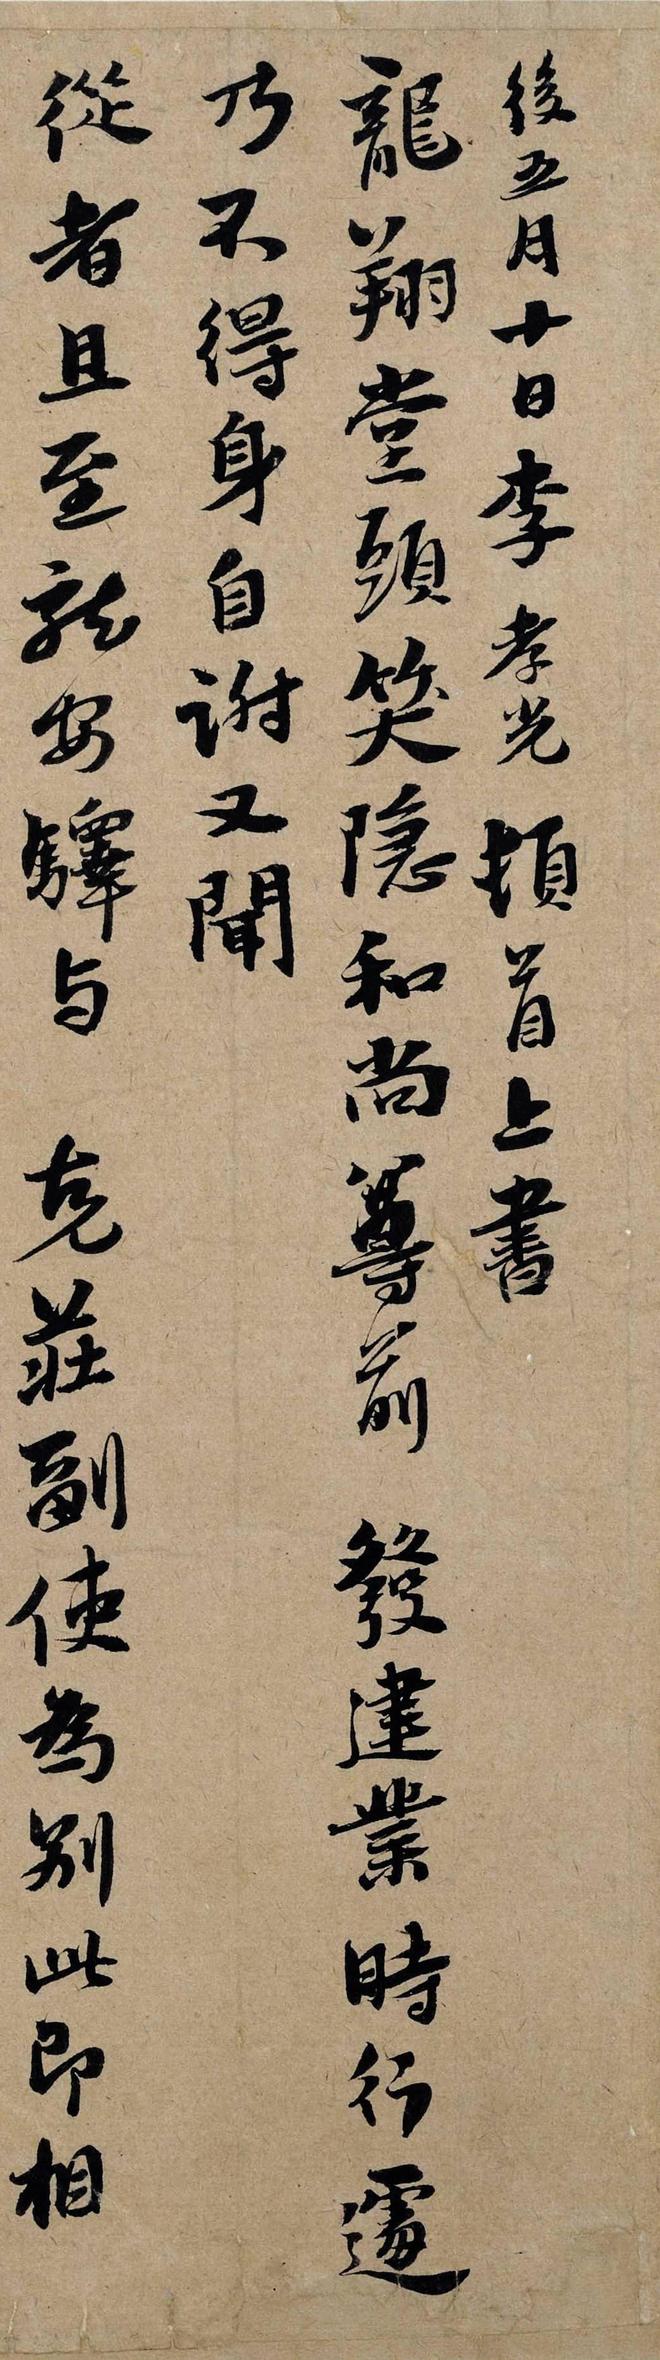 後五月十日李孝光頓首上書
龍翔堂頭笑隱和尚尊前發建業時行遽
乃不得身自謝又聞
從者且至就安驛与克莊副使為別此即相